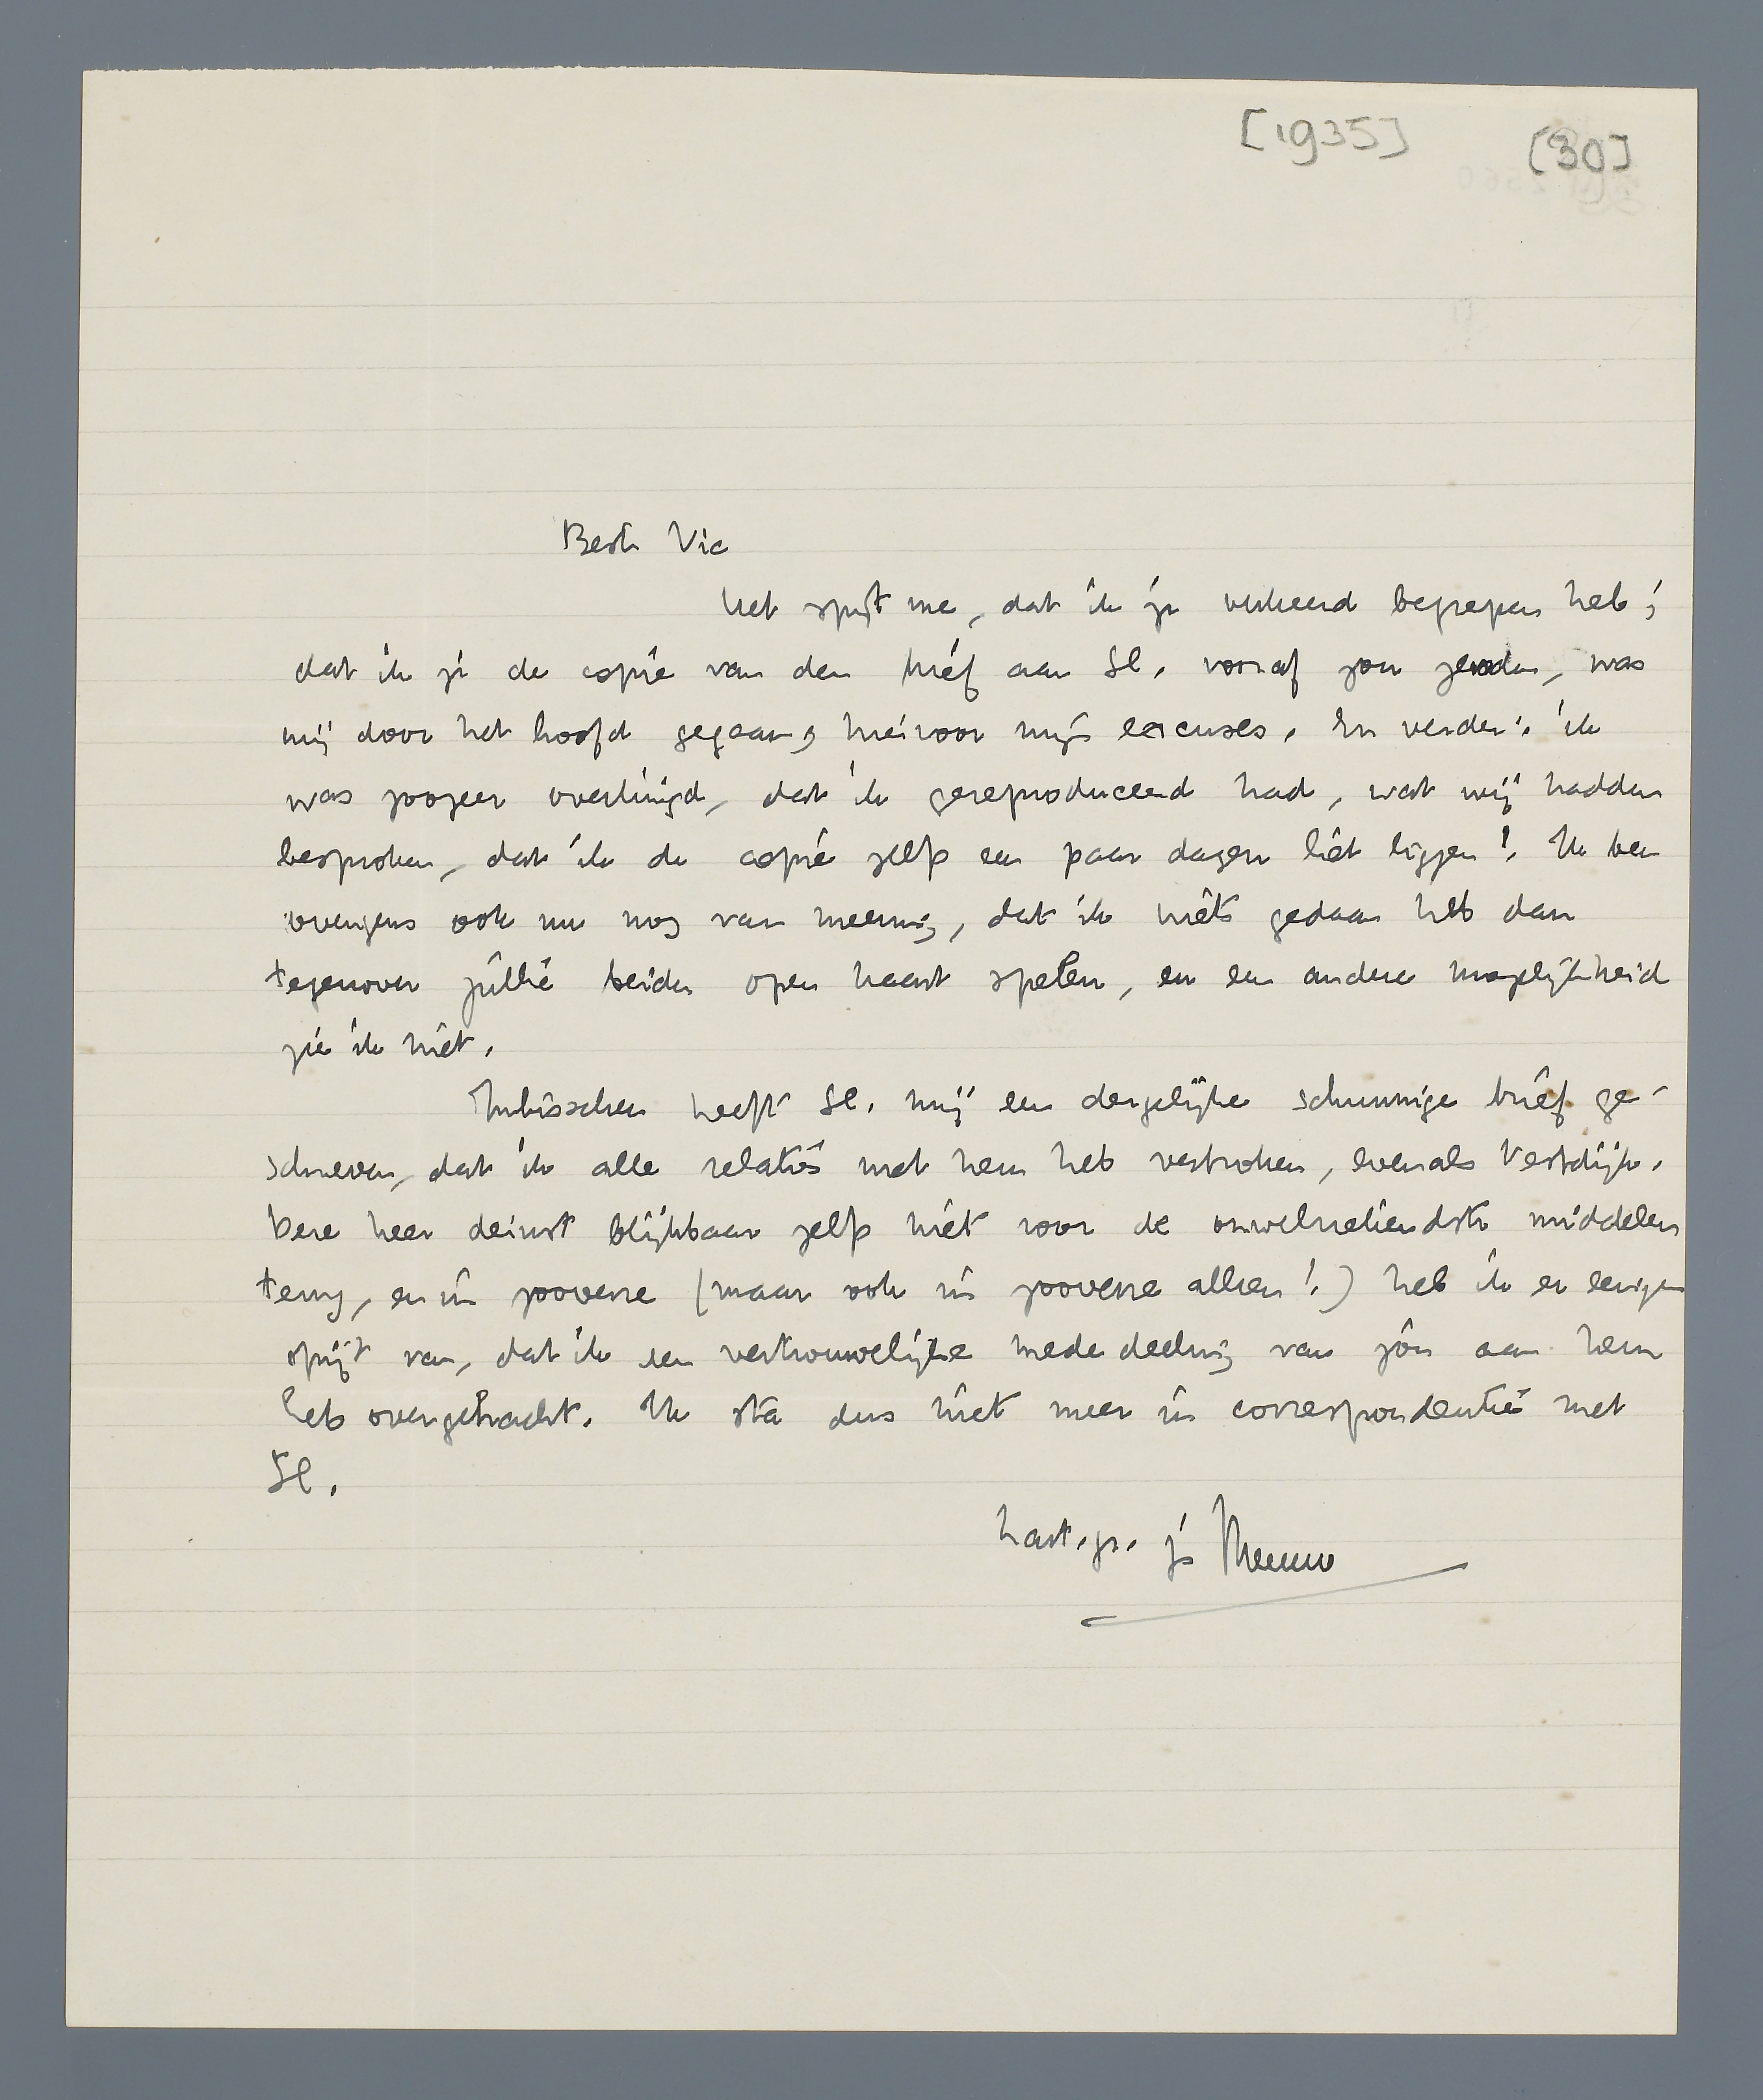 [1935] [30]
Beste Vic
Het spijt me, dat ik je verkeerd begrepen heb;
dat ik je de copie van den brief aan Sl. vooraf zou zenden, was
mij door het hoofd gegaan; hiervoor mijn excuses. En verder: ik
was zoozeer overtuigd, dat ik gereproduceerd had, wat wij hadden
besproken, dat ik de copie zelfs een paar dagen liet liggen! Ik ben
overigens ook nu nog van meening, dat ik niets gedaan heb dan
tegenover jullie beiden open kaart spelen, en een andere mogelijkheid
zie ik niet.
Inlusschen heeft Sl. mij een dergelijke schunnige brief ge-
schreven, dat ik alle relaties met hem heb verbroken, evenals Vestdijk.
Deze heer deinst blijkbaar zelfs niet voor de onwelriekendste middelen
terug, en in zooverre (maar ook in zooverre alleen!) heb ik er eenigen
spijt van, dat ik een vertrouwelijke mededeeling van jou aan hem
heb overgebracht. Ik sta dus niet meer in correspondentie met
Sl.
hart. gr. je Menno